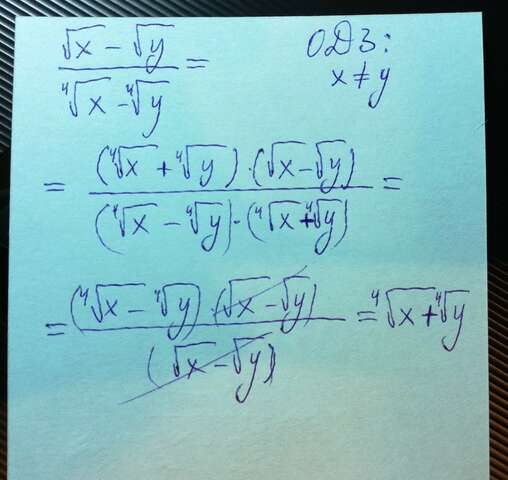 (√x − √y) / (⁴√x − ⁴√y) =
ОДЗ:
x ≠ y
= ((⁴√x + ⁴√y) · (√x − √y)) / ((⁴√x − ⁴√y) · (⁴√x + ⁴√y)) =
= ((⁴√x − ⁴√y) · (√x − √y)) / (√x − √y) = ⁴√x + ⁴√y